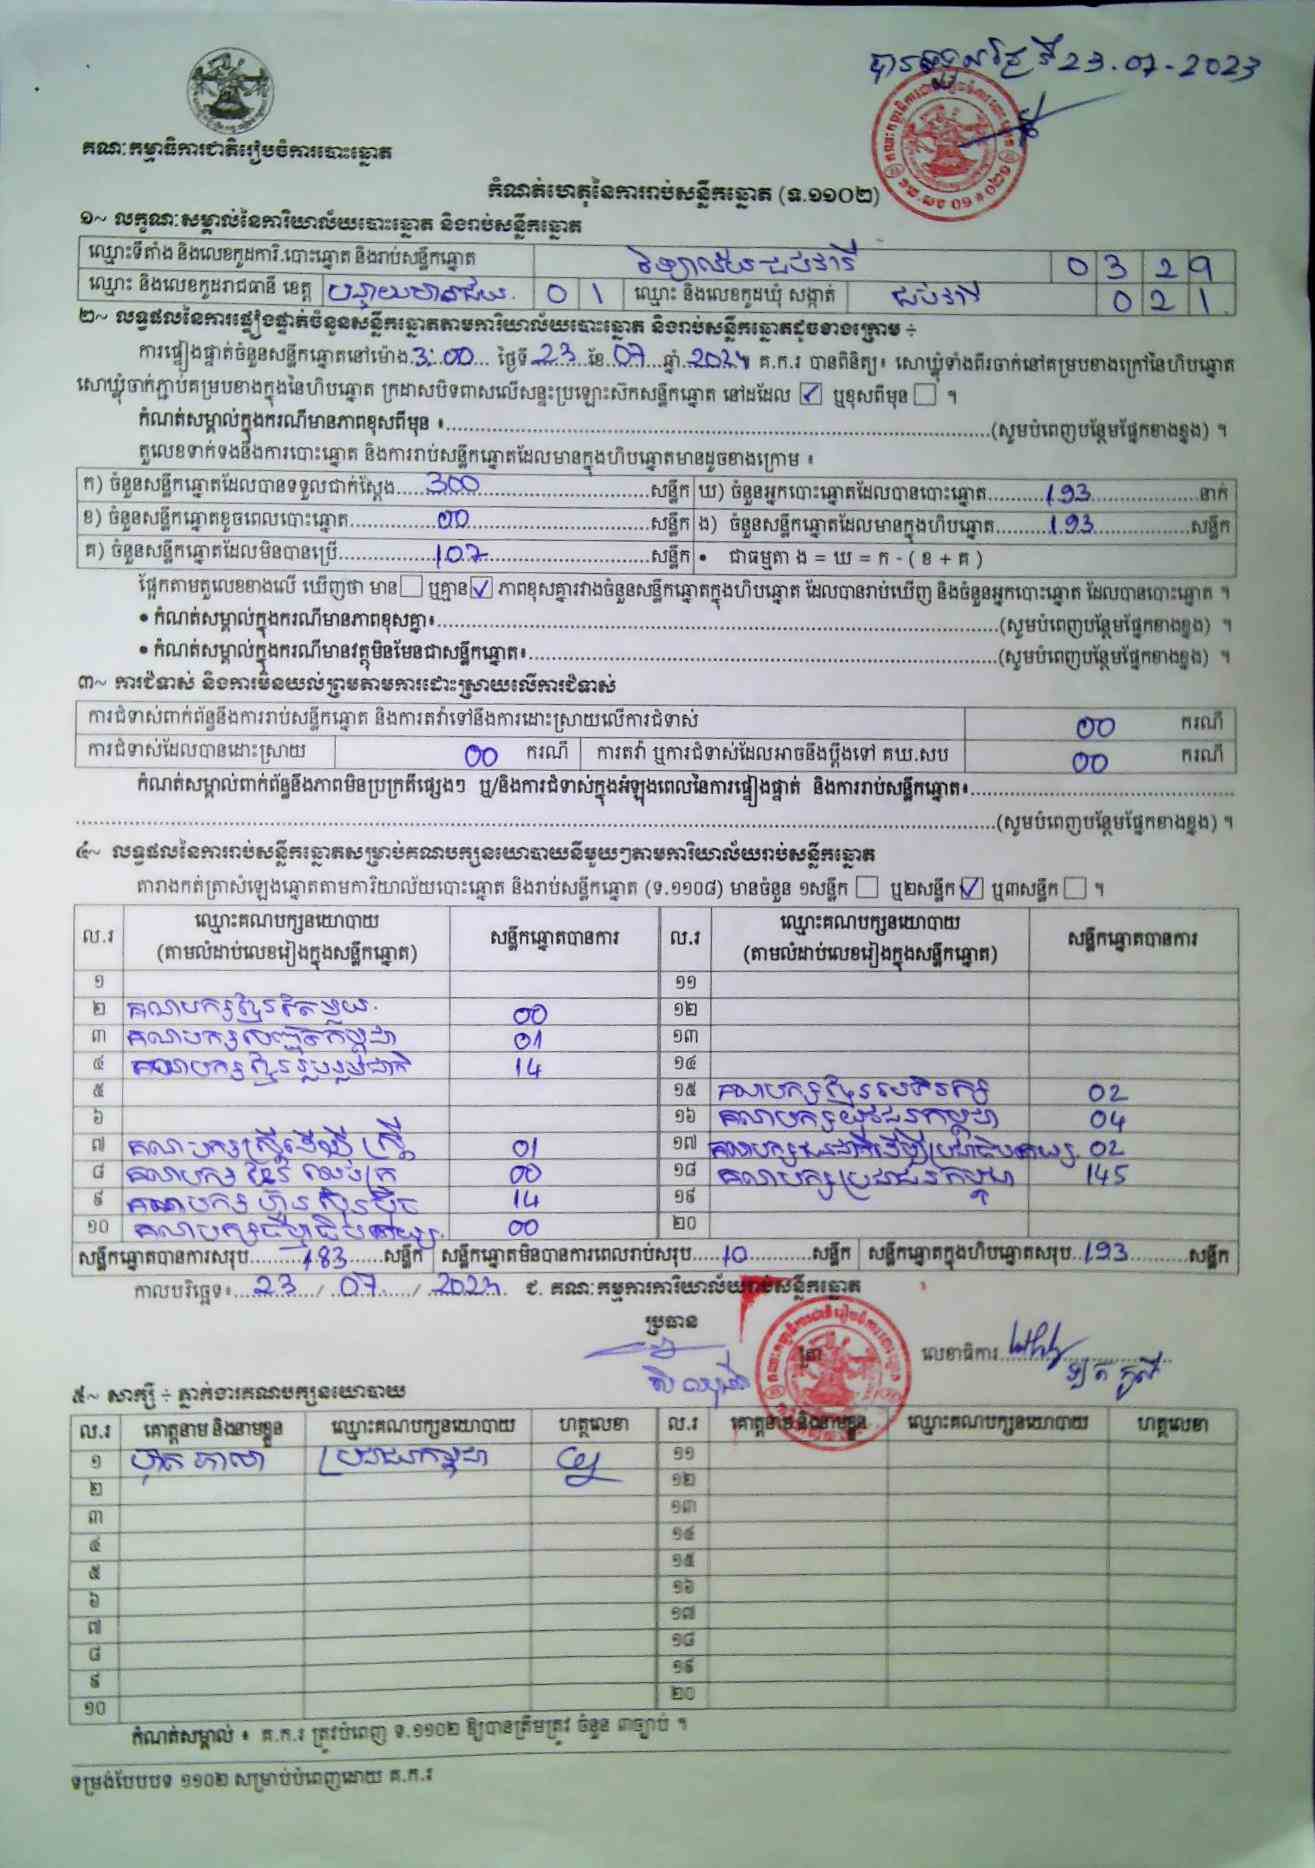 បានទទួលថ្ងៃទី 23.07-2023
គណៈកម្មាធិការជាតិរៀបចំការបោះឆ្នោត
កំណត់ហេតុនៃការរាប់សន្លឹកឆ្នោត (ទ.១១០២)
១~ លក្ខណៈសម្គាល់នៃការិយាល័យបោះឆ្នោត និងរាប់សន្លឹកឆ្នោត
ឈ្មោះទីតាំង និងលេខកូដការិ.បោះឆ្នោត និងរាប់សន្លឹកឆ្នោត វិទ្យាល័យ ជបវារី 0 3 2 9
ឈ្មោះ និងលេខកូដរាជធានី ខេត្ត បន្ទាយមានជ័យ 0 1 ឈ្មោះ និងលេខកូដឃុំ សង្កាត់ ជប់វារី 0 2 1
២~ លទ្ធផលនៃការផ្ទៀងផ្ទាត់ចំនួនសន្លឹកឆ្នោតតាមការិយាល័យបោះឆ្នោត និងរាប់សន្លឹកឆ្នោតដូចខាងក្រោម ÷
ការផ្ទៀងផ្ទាត់ចំនួនសន្លឹកឆ្នោតនៅម៉ោង.3:00... ថ្ងៃទី 23 ខែ.07 ឆ្នាំ.2023 គ.ក.រ បានពិនិត្យ៖ សោឃ្លុំទាំងពីរចាក់នៅគម្របខាងក្រៅនៃហិបឆ្នោត
សោឃ្លុំចាក់ភ្ជាប់គម្របខាងក្នុងនៃហិបឆ្នោត ក្រដាសបិទពាសលើសន្ទះប្រឡោះស៊កសន្លឹកឆ្នោត នៅដដែល ☑ ឬខុសពីមុន ☐ ។
កំណត់សម្គាល់ក្នុងករណីមានភាពខុសពីមុន ៖..........(សូមបំពេញបន្ថែមផ្នែកខាងខ្នង) ។
តួលេខទាក់ទងនឹងការបោះឆ្នោត និងការរាប់សន្លឹកឆ្នោតដែលមានក្នុងហិបឆ្នោតមានដូចខាងក្រោម ៖
ក) ចំនួនសន្លឹកឆ្នោតដែលបានទទួលជាក់ស្តែង....300....សន្លឹក ឃ) ចំនួនអ្នកបោះឆ្នោតដែលបានបោះឆ្នោត....193....នាក់
ខ) ចំនួនសន្លឹកឆ្នោតខូចពេលបោះឆ្នោត....00....សន្លឹក ង) ចំនួនសន្លឹកឆ្នោតដែលមានក្នុងហិបឆ្នោត....193....សន្លឹក
គ) ចំនួនសន្លឹកឆ្នោតដែលមិនបានប្រើ....107....សន្លឹក • ជាធម្មតា ង = ឃ = ក - ( ខ + គ )
ផ្អែកតាមតួលេខខាងលើ ឃើញថា មាន ☐ ឬគ្មាន ☑ ភាពខុសគ្នារវាងចំនួនសន្លឹកឆ្នោតក្នុងហិបឆ្នោត ដែលបានរាប់ឃើញ និងចំនួនអ្នកបោះឆ្នោត ដែលបានបោះឆ្នោត ។
• កំណត់សម្គាល់ក្នុងករណីមានភាពខុសគ្នា៖..........(សូមបំពេញបន្ថែមផ្នែកខាងខ្នង) ។
• កំណត់សម្គាល់ក្នុងករណីមានវត្ថុមិនមែនជាសន្លឹកឆ្នោត៖..........(សូមបំពេញបន្ថែមផ្នែកខាងខ្នង) ។
៣~ ការជំទាស់ និងការមិនយល់ព្រមតាមការដោះស្រាយលើការជំទាស់
ការជំទាស់ពាក់ព័ន្ធនឹងការរាប់សន្លឹកឆ្នោត និងការតវ៉ាទៅនឹងការដោះស្រាយលើការជំទាស់ 00 ករណី
ការជំទាស់ដែលបានដោះស្រាយ 00 ករណី ការតវ៉ា ឬការជំទាស់ដែលអាចនឹងប្តឹងទៅ គឃ.សប 00 ករណី
កំណត់សម្គាល់ពាក់ព័ន្ធនឹងភាពមិនប្រក្រតីផ្សេងៗ ឬ/និងការជំទាស់ក្នុងអំឡុងពេលនៃការផ្ទៀងផ្ទាត់ និងការរាប់សន្លឹកឆ្នោត៖..........
..........(សូមបំពេញបន្ថែមផ្នែកខាងខ្នង) ។
៤~ លទ្ធផលនៃការរាប់សន្លឹកឆ្នោតសម្រាប់គណបក្សនយោបាយនីមួយៗតាមការិយាល័យរាប់សន្លឹកឆ្នោត
តារាងកត់ត្រាសំឡេងឆ្នោតតាមការិយាល័យបោះឆ្នោត និងរាប់សន្លឹកឆ្នោត (ទ.១១០៨) មានចំនួន ១សន្លឹក ☐ ឬ២សន្លឹក ☑ ឬ៣សន្លឹក ☐ ។
ល.រ ឈ្មោះគណបក្សនយោបាយ (តាមលំដាប់លេខរៀងក្នុងសន្លឹកឆ្នោត) សន្លឹកឆ្នោតបានការ ល.រ ឈ្មោះគណបក្សនយោបាយ (តាមលំដាប់លេខរៀងក្នុងសន្លឹកឆ្នោត) សន្លឹកឆ្នោតបានការ
១ ១១
២ គណបក្សខ្មែរតែមួយ 00 ១២
៣ គណបក្សសញ្ជាតិកម្ពុជា 01 ១៣
៤ គណបក្សខ្មែររួបរួមជាតិ 14 ១៤
៥ ១៥ គណបក្សខ្មែរ 02
៦ ១៦ គណបក្សយុវជនកម្ពុជា 04
៧ គណបក្សស្ត្រីដើម្បីស្ត្រី 01 ១៧ គណបក្ស 02
៨ គណបក្ស 00 ១៨ គណបក្សប្រជាជនកម្ពុជា 145
៩ គណបក្សហ៊្វុនស៊ិនប៉ិច 14 ១៩
១០ គណបក្ស 00 ២០
សន្លឹកឆ្នោតបានការសរុប....183....សន្លឹក សន្លឹកឆ្នោតមិនបានការពេលរាប់សរុប....10....សន្លឹក សន្លឹកឆ្នោតក្នុងហិបឆ្នោតសរុប..193....សន្លឹក
កាលបរិច្ឆេទ៖...23.../...07.../...2023. ជ. គណៈកម្មការការិយាល័យរាប់សន្លឹកឆ្នោត
ប្រធាន
ត្រា លេខាធិការ
៥~ សាក្សី ÷ ភ្នាក់ងារគណបក្សនយោបាយ
ល.រ គោត្តនាម និងនាមខ្លួន ឈ្មោះគណបក្សនយោបាយ ហត្ថលេខា ល.រ គោត្តនាម និងនាមខ្លួន ឈ្មោះគណបក្សនយោបាយ ហត្ថលេខា
១ ប្រជាជនកម្ពុជា ១១
២ ១២
៣ ១៣
៤ ១៤
៥ ១៥
៦ ១៦
៧ ១៧
៨ ១៨
៩ ១៩
១០ ២០
កំណត់សម្គាល់ ៖ គ.ក.រ ត្រូវបំពេញ ទ.១១០២ ឱ្យបានត្រឹមត្រូវ ចំនួន ៣ច្បាប់ ។
ទម្រង់បែបបទ ១១០២ សម្រាប់បំពេញដោយ គ.ក.រ